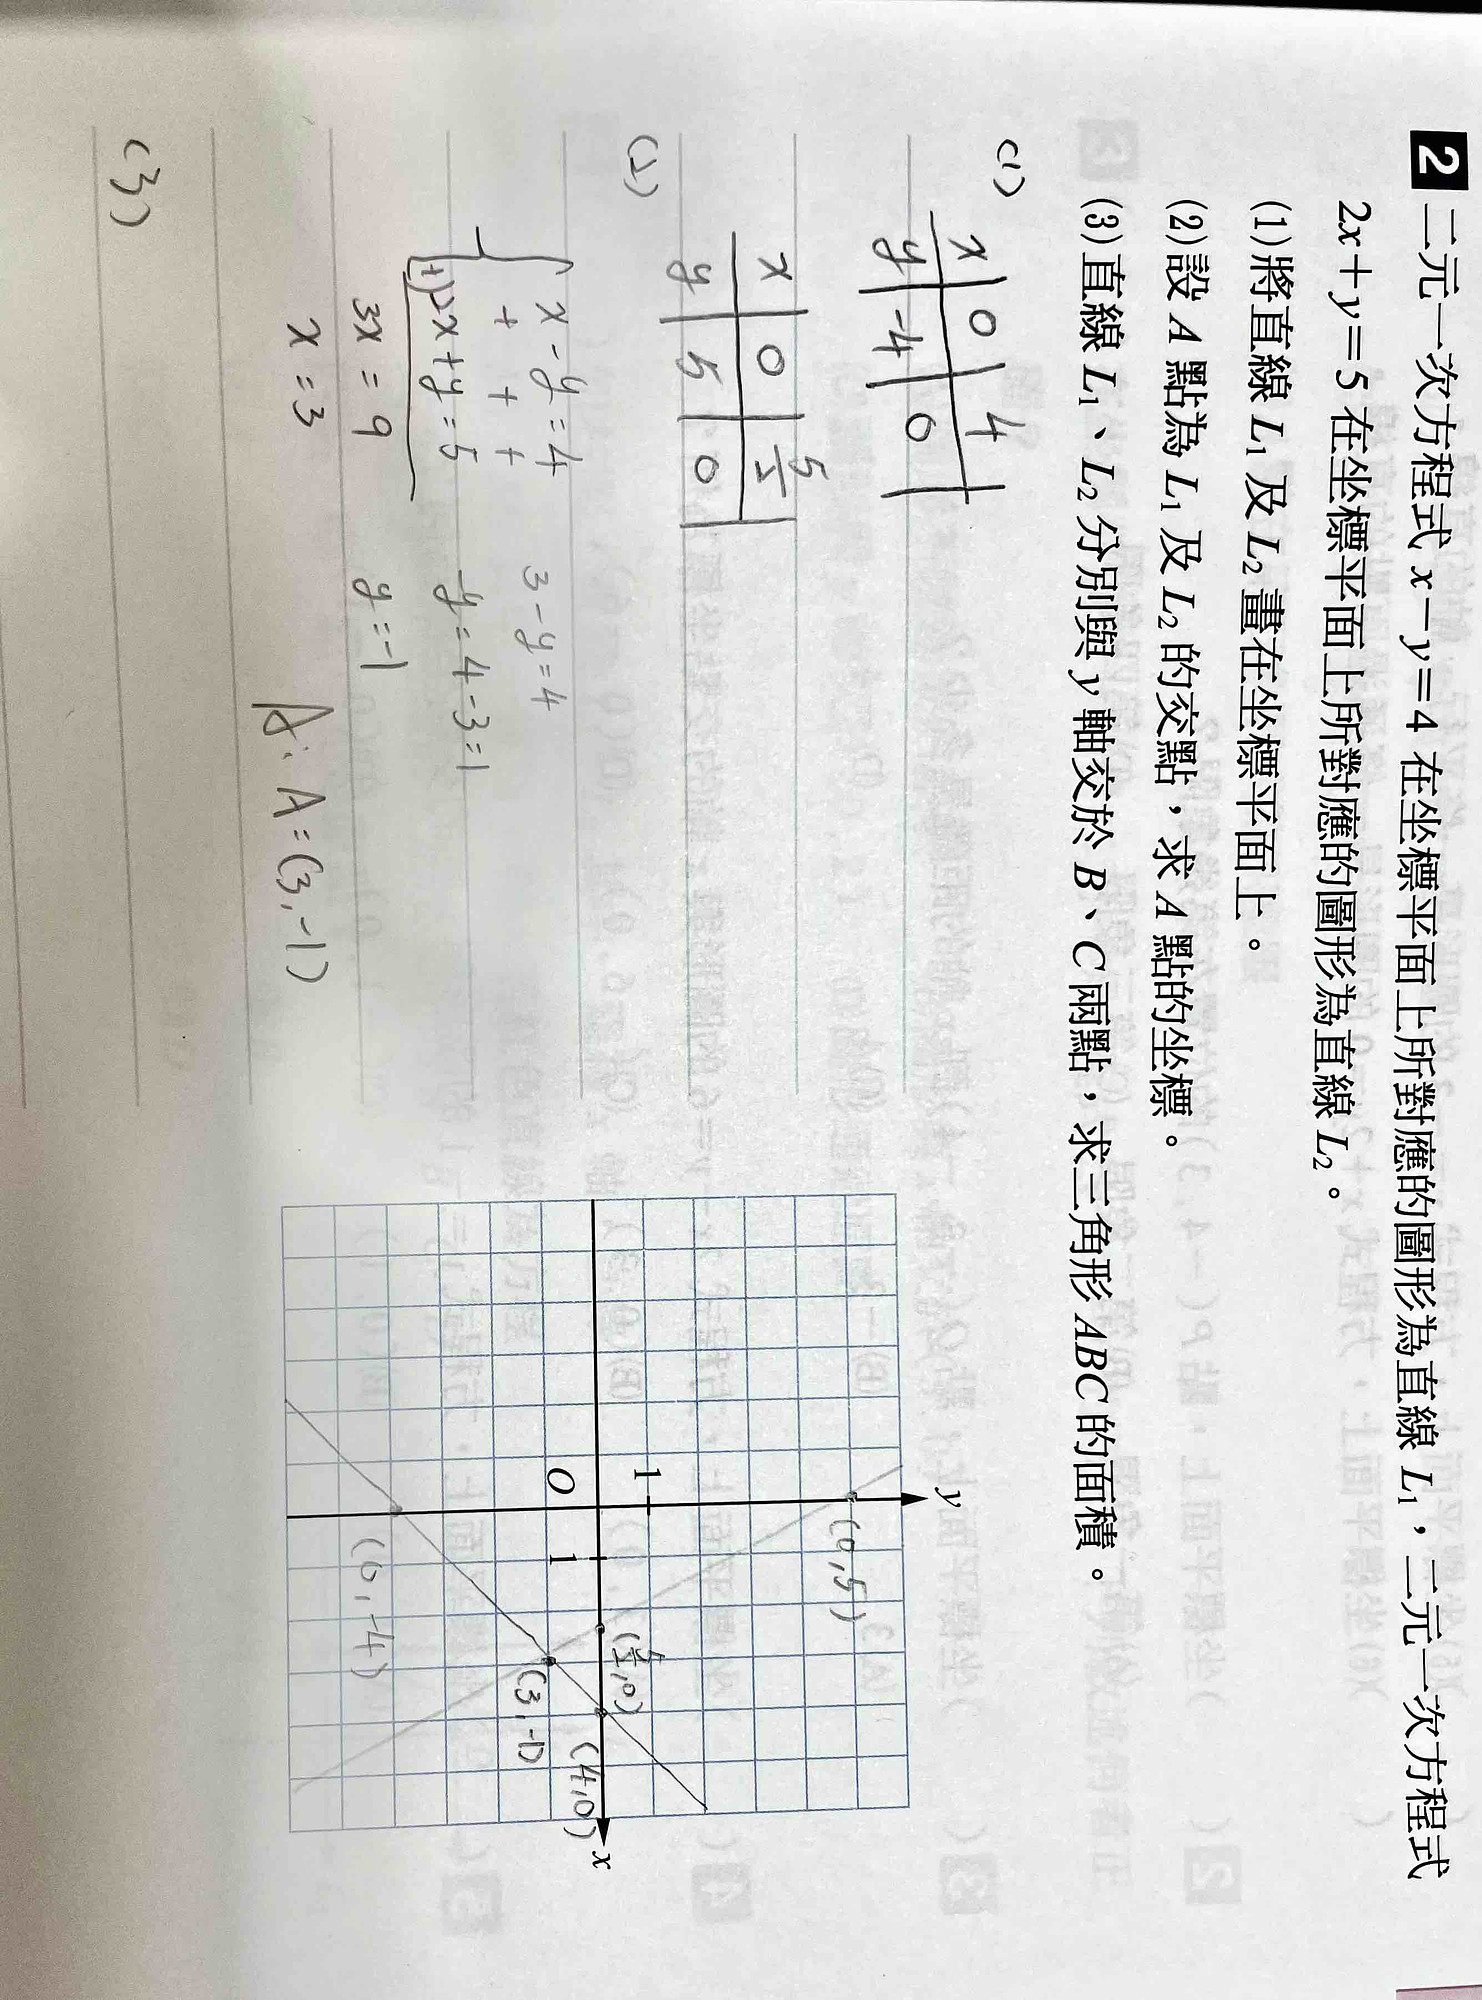 2 二元一次方程式 x－y＝4 在坐標平面上所對應的圖形為直線 L₁，二元一次方程式
2x＋y＝5 在坐標平面上所對應的圖形為直線 L₂。
(1)將直線 L₁ 及 L₂ 畫在坐標平面上。
(2)設 A 點為 L₁ 及 L₂ 的交點，求 A 點的坐標。
(3)直線 L₁、L₂ 分別與 y 軸交於 B、C 兩點，求三角形 ABC 的面積。
(1)
x 0 4
y -4 0
x 0 5/2
y 5 0
(2)
x-y=4
+ + +
+)2x+y=5
3x=9
x=3
3-y=4
-y=4-3=1
y=-1
A: A=(3,-1)
(3)
y
(0,5)
1
(5/2,0)
O
1
(4,0)
x
(3,-1)
(0,-4)